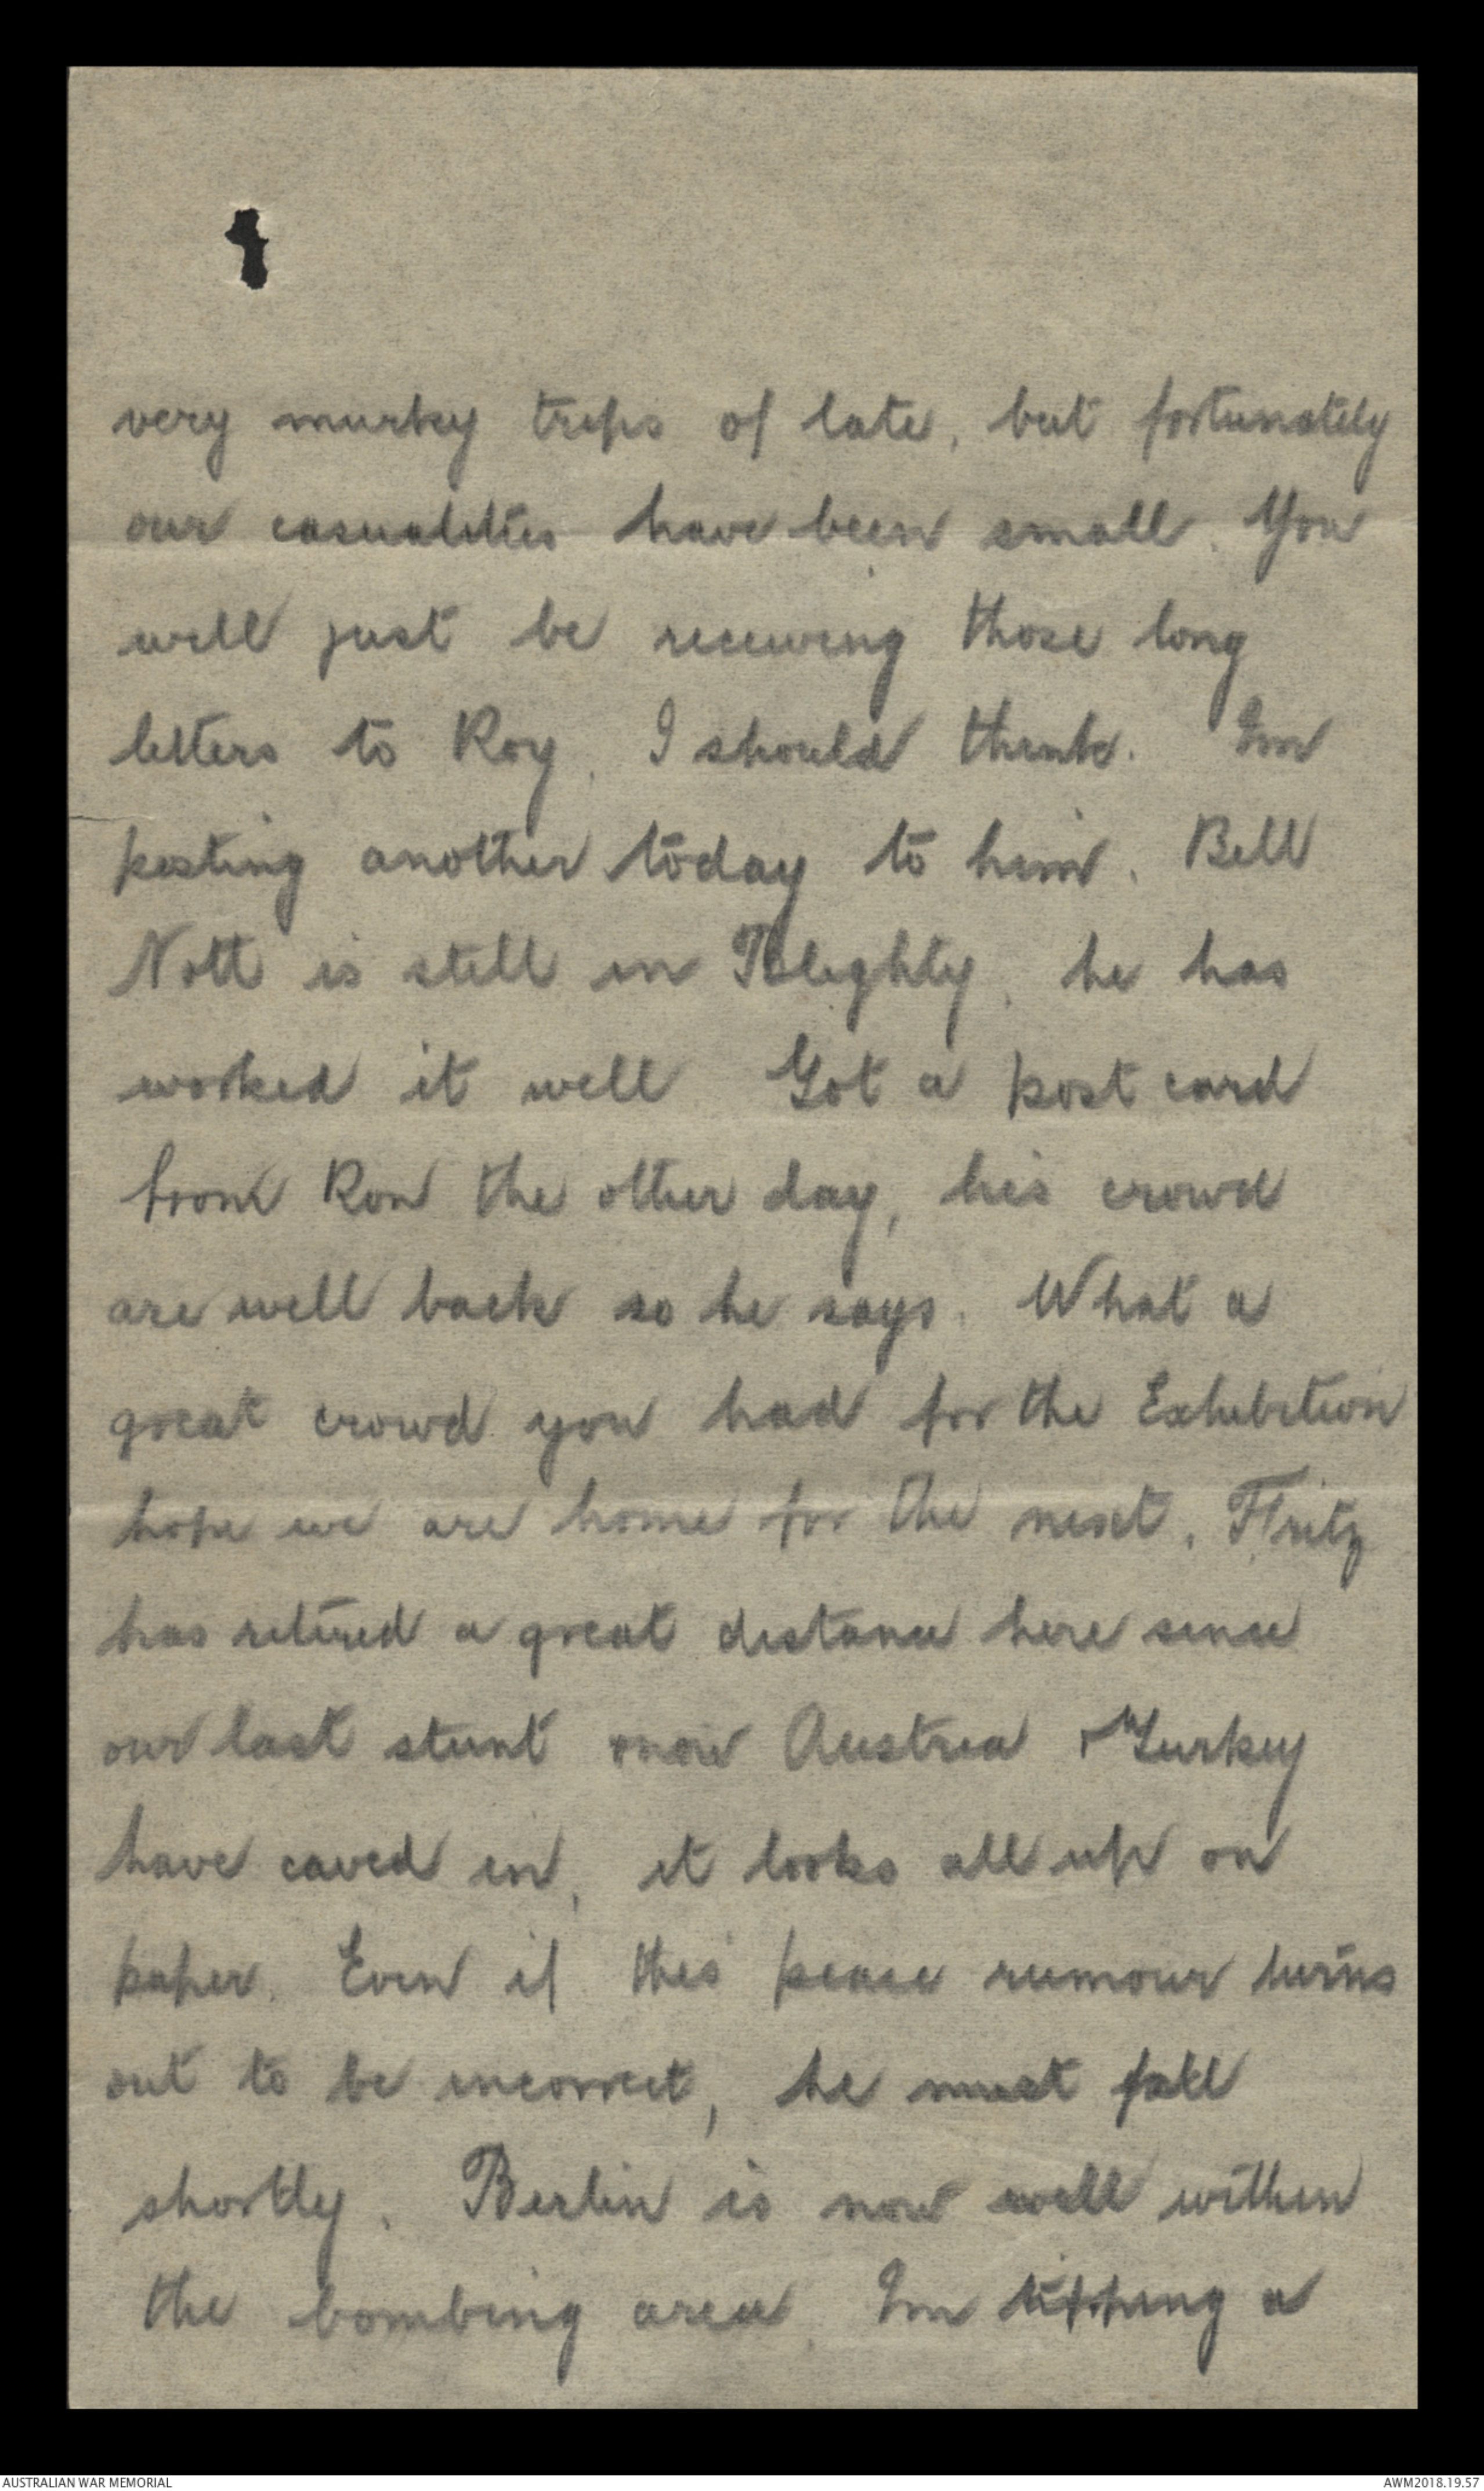 very murky trips of late, but fortunately
our casualities have been small. You
will just be receiving those long
letters to Roy, I should think. Im
posting another today to him. Bill
Nott is still in Blighty, he has
worked it well Got a post card
from Ron the other day, his crowd
are well back so he says. What a
great crowd you had for the Exhibition
hope we are home for the next. Fritz
has retired a great distance here since
our last stunt now Austria & Turkey
have caved in, it looks all up on
paper. Even if this peace rumour turns
out to be incorrect, he must fall
shortly. Berlin is now well within
the bombing area. Im tipping a
AUSTRALIAN WAR MEMORIAL
AWM2018.19.57